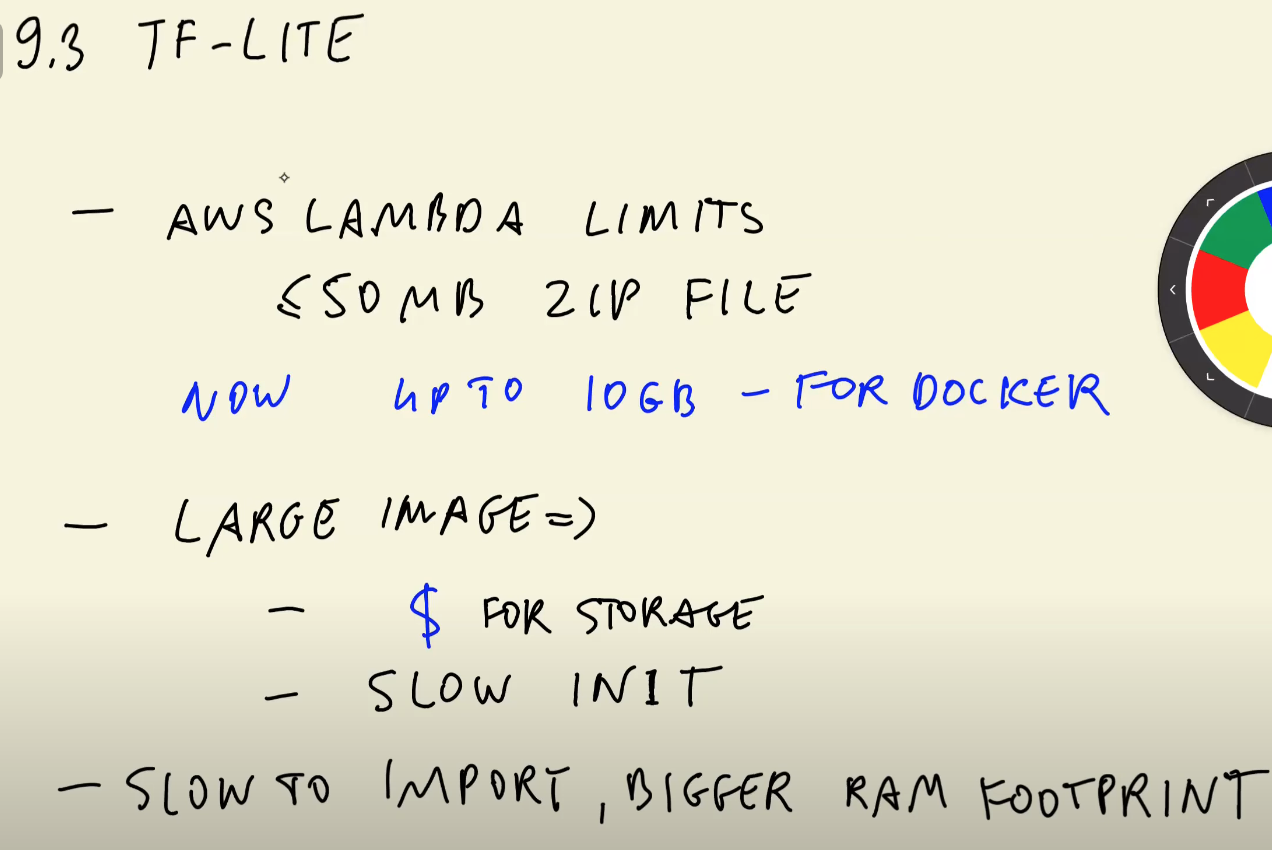 9.3 TF-LITE
- AWS LAMBDA LIMITS
≤50 MB ZIP FILE
NOW UP TO 10GB - FOR DOCKER
- LARGE IMAGE =>
- $ FOR STORAGE
- SLOW INIT
- SLOW TO IMPORT, BIGGER RAM FOOTPRINT